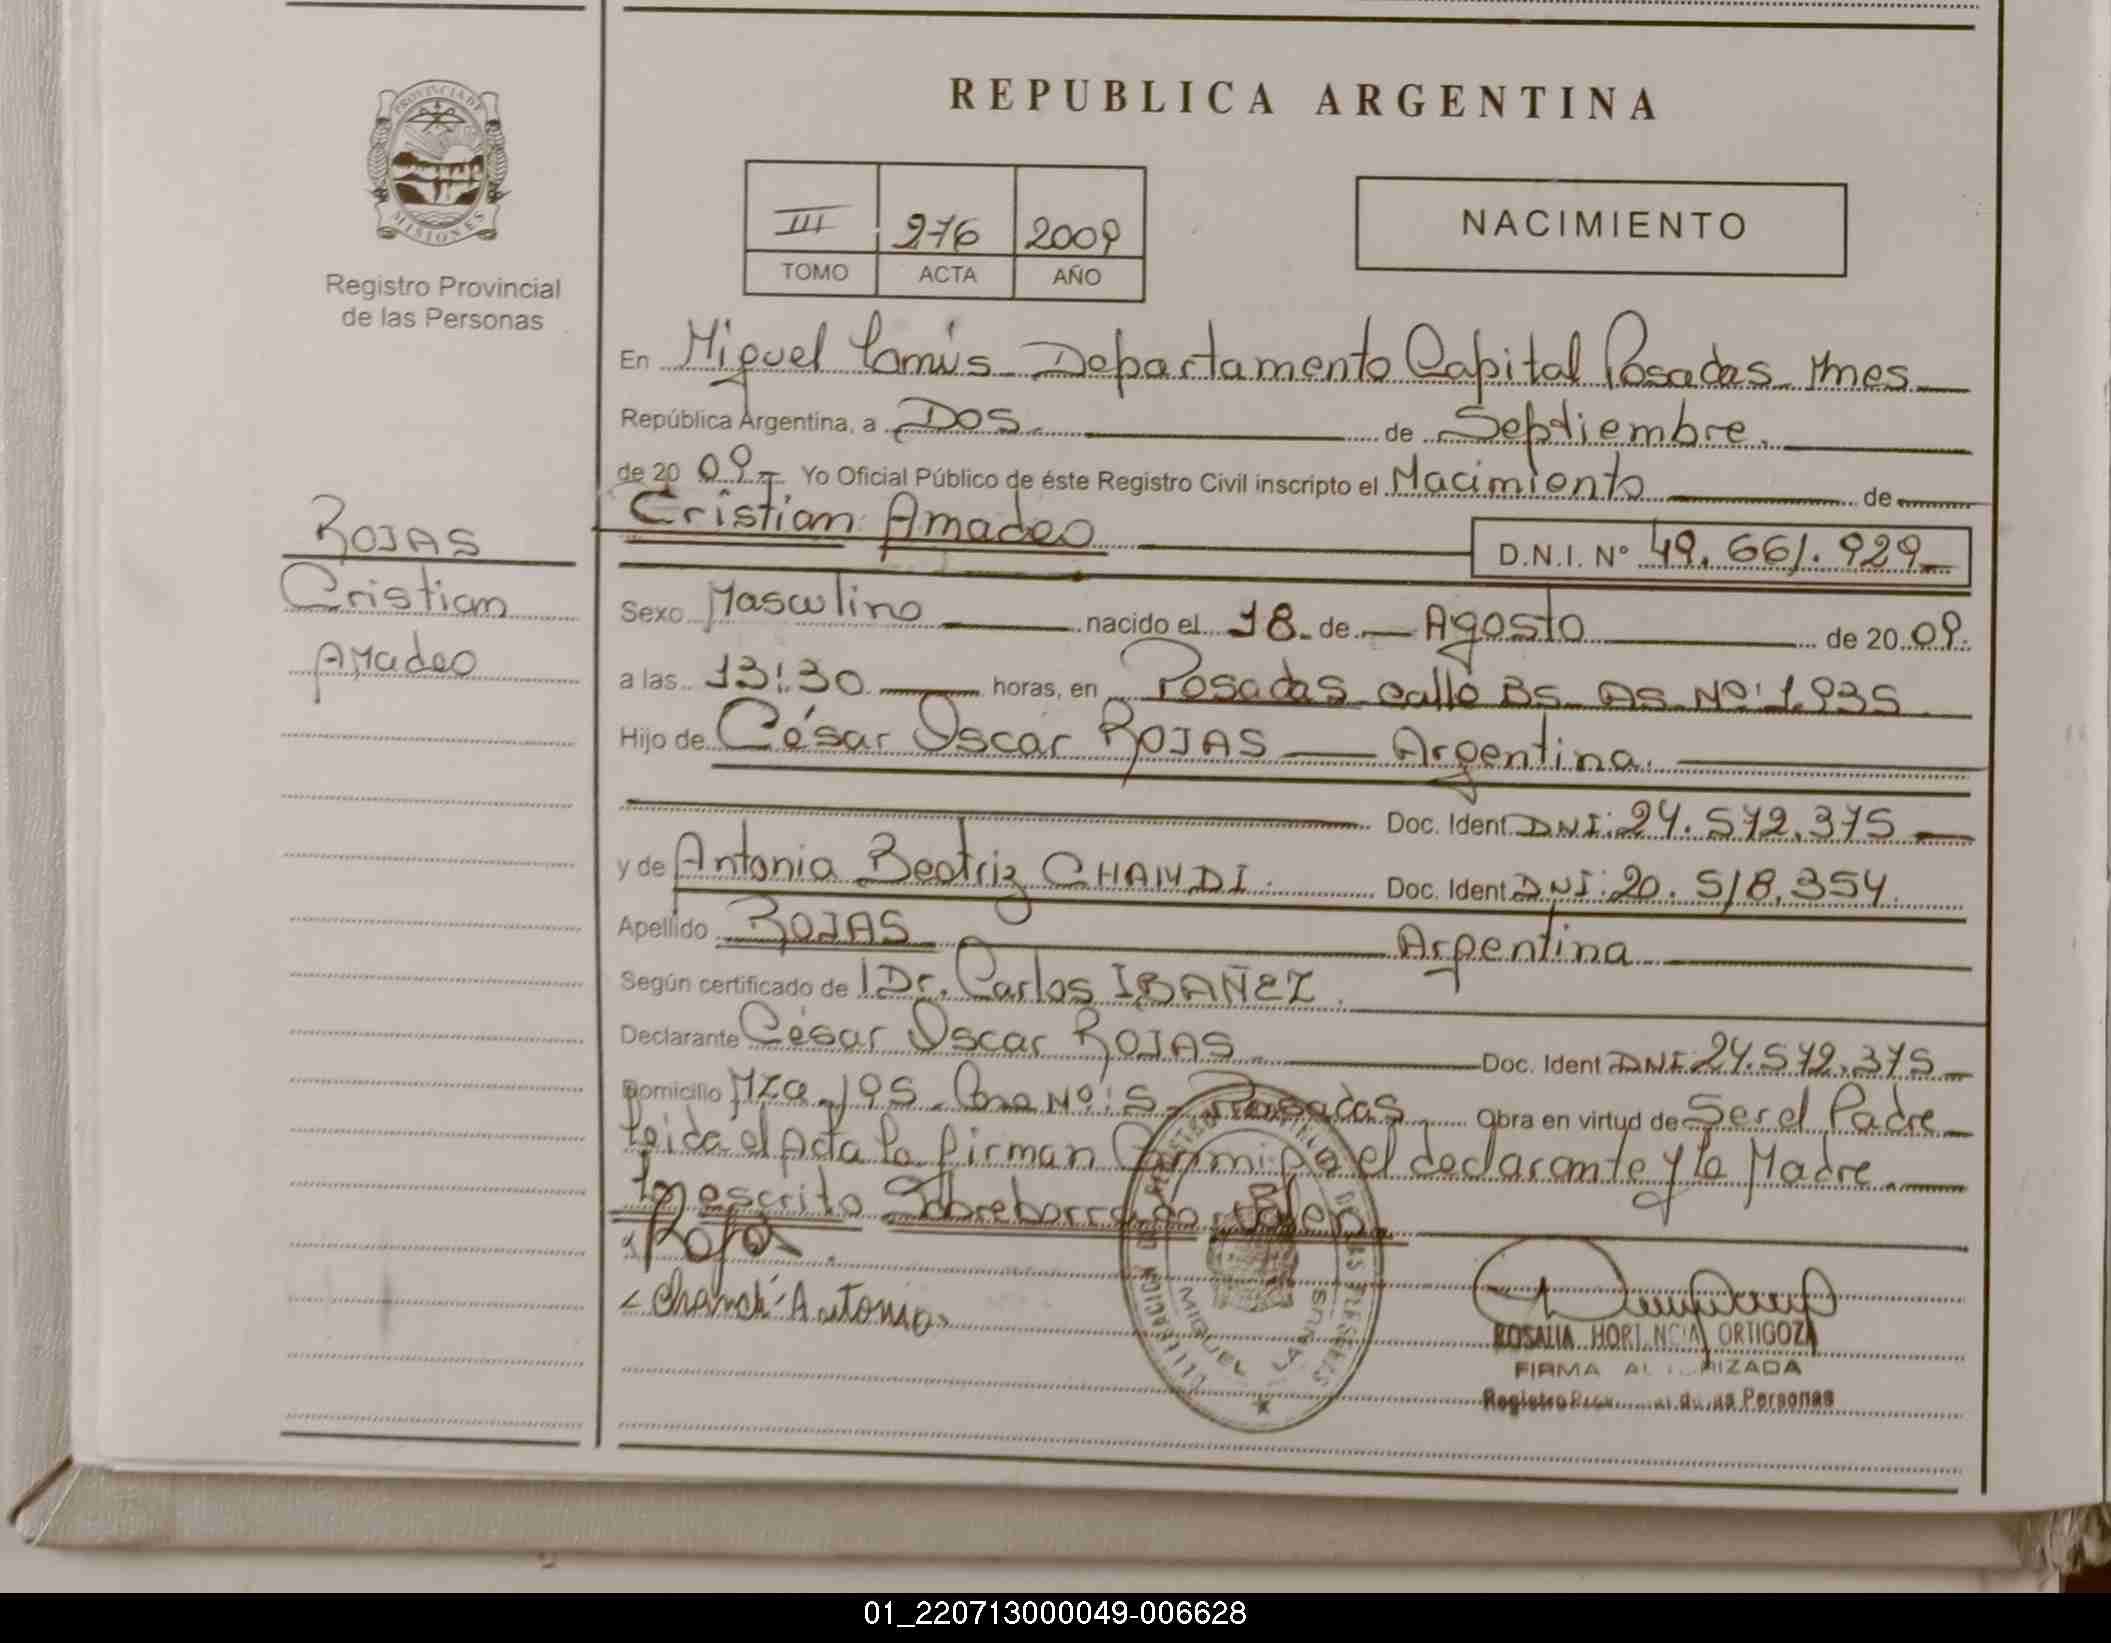 REPUBLICA ARGENTINA
PROVINCIA DE
MISIONES
Registro Provincial
de las Personas
III 276 2009
TOMO ACTA AÑO
NACIMIENTO
En Miguel Lanús Departamento Capital Posadas Mnes
República Argentina, a Dos de Septiembre.
de 20 09 Yo Oficial Público de éste Registro Civil inscripto el Nacimiento de
Cristian Amadeo D.N.I. Nº 49.661.929
ROJAS
Cristian
Amadeo
Sexo Masculino nacido el 18 de Agosto de 20 09.
a las 13:30 horas, en Posadas calle Bs As Nº: 1.935
Hijo de César Oscar ROJAS Argentina.
Doc. Ident DNI: 24.572.375
y de Antonia Beatriz CHAMDI. Doc. Ident DNI: 20.518.354.
Apellido ROJAS Argentina
Según certificado de Dr. Carlos IBAÑEZ.
Declarante César Oscar ROJAS Doc. Ident DNI: 24.572.375
Domicilio Mza 195 Casa Nº: 5 Posadas Obra en virtud de Ser el Padre
Leida el Acta la firman Conmigo el declarante y la Madre.
Lo escrito Sobreborrado Vale.
Rojas
Antonia
MIGUEL LANUS
ROSALIA HORTENCIA ORTIGOZA
FIRMA AUTORIZADA
Registro de las Personas
01_220713000049-006628